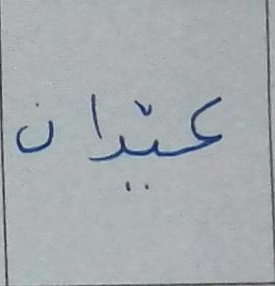 عيدان